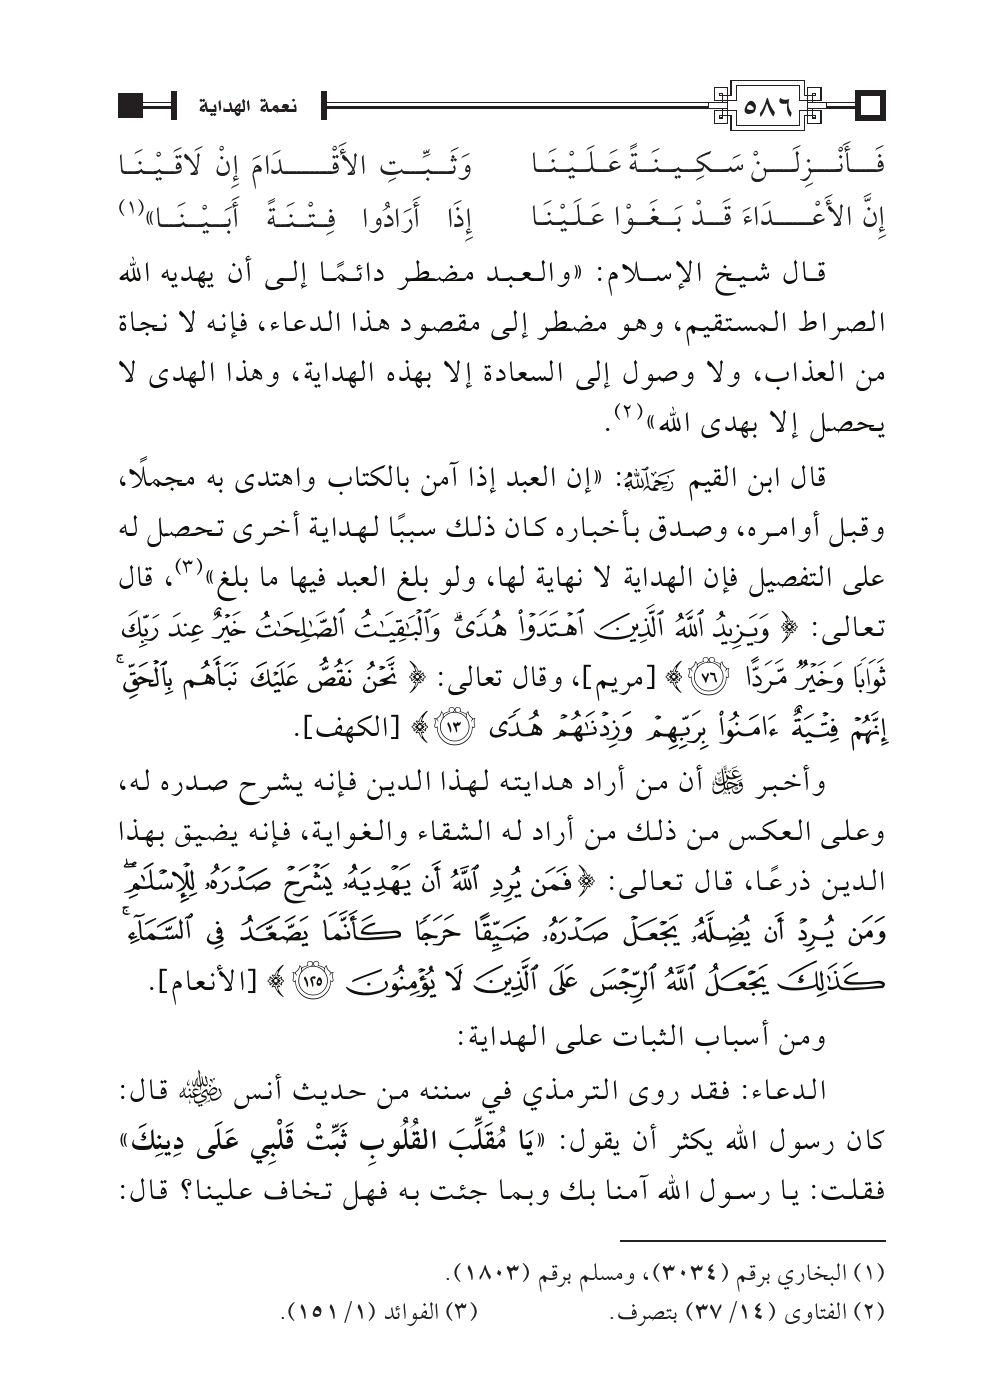 ٥٨٦ نعمة الهداية
فَــأَنْــزِلَــنْ سَــكِــيــنَــةً عَــلَــيْــنَــا وَثَــبِّــتِ الأَقْــــدَامَ إِنْ لَاقَــيْــنَــا
إِنَّ الأَعْــــدَاءَ قَــدْ بَــغَــوْا عَــلَــيْــنَــا إِذَا أَرَادُوا فِــتْــنَــةً أَبَــيْــنَــا»(١)
قال شيخ الإسلام: «والعبد مضطر دائمًا إلى أن يهديه الله
الصراط المستقيم، وهو مضطر إلى مقصود هذا الدعاء، فإنه لا نجاة
من العذاب، ولا وصول إلى السعادة إلا بهذه الهداية، وهذا الهدى لا
يحصل إلا بهدى الله»(٢).
قال ابن القيم رَحِمَهُ ٱللَّهُ: «إن العبد إذا آمن بالكتاب واهتدى به مجملًا،
وقبل أوامره، وصدق بأخباره كان ذلك سببًا لهداية أخرى تحصل له
على التفصيل فإن الهداية لا نهاية لها، ولو بلغ العبد فيها ما بلغ»(٣)، قال
تعالى: ﴿ وَيَزِيدُ ٱللَّهُ ٱلَّذِينَ ٱهْتَدَوْا۟ هُدًى ۗ وَٱلْبَـٰقِيَـٰتُ ٱلصَّـٰلِحَـٰتُ خَيْرٌ عِندَ رَبِّكَ
ثَوَابًا وَخَيْرٌ مَّرَدًّا ٧٦﴾ [مريم]، وقال تعالى: ﴿ نَّحْنُ نَقُصُّ عَلَيْكَ نَبَأَهُم بِٱلْحَقِّ ۚ
إِنَّهُمْ فِتْيَةٌ ءَامَنُوا۟ بِرَبِّهِمْ وَزِدْنَـٰهُمْ هُدًى ١٣﴾ [الكهف].
وأخبر عَزَّ وَجَلَّ أن من أراد هدايته لهذا الدين فإنه يشرح صدره له،
وعلى العكس من ذلك من أراد له الشقاء والغواية، فإنه يضيق بهذا
الدين ذرعًا، قال تعالى: ﴿ فَمَن يُرِدِ ٱللَّهُ أَن يَهْدِيَهُۥ يَشْرَحْ صَدْرَهُۥ لِلْإِسْلَـٰمِ ۖ
وَمَن يُرِدْ أَن يُضِلَّهُۥ يَجْعَلْ صَدْرَهُۥ ضَيِّقًا حَرَجًا كَأَنَّمَا يَصَّعَّدُ فِى ٱلسَّمَآءِ ۚ
كَذَٰلِكَ يَجْعَلُ ٱللَّهُ ٱلرِّجْسَ عَلَى ٱلَّذِينَ لَا يُؤْمِنُونَ ١٢٥﴾ [الأنعام].
ومن أسباب الثبات على الهداية:
الدعاء: فقد روى الترمذي في سننه من حديث أنس رَضِيَ ٱللَّهُ عَنْهُ قال:
كان رسول الله يكثر أن يقول: «يَا مُقَلِّبَ القُلُوبِ ثَبِّتْ قَلْبِي عَلَى دِينِكَ»
فقلت: يا رسول الله آمنا بك وبما جئت به فهل تخاف علينا؟ قال:
(١) البخاري برقم (٣٠٣٤)، ومسلم برقم (١٨٠٣).
(٢) الفتاوى (١٤/ ٣٧) بتصرف. (٣) الفوائد (١/ ١٥١).